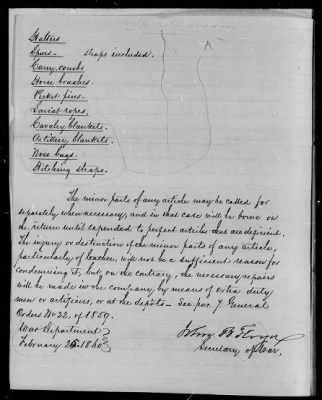 Halters
Spurs - straps included.
Curry combs
Horse brushes.
Picket pins.
Lariat ropes.
Cavalry blankets.
Artillery blankets.
Nose bags.
Hitching straps.
The minor parts of any article may be called for
separately when necessary, and in that case will be borne on
the return until expended to perfect articles that are deficient.
The injury or destruction of the minor parts of any article,
particularly of leather, will not be a sufficient reason for
condemning it, but, on the contrary, the necessary repairs
will be made in the company, by means of extra duty
men or artificers, or at the depots - See par. 7. General
Orders No 22. of 1859.
War Department
February 25 1860
John B Floyd
Secretary of War.